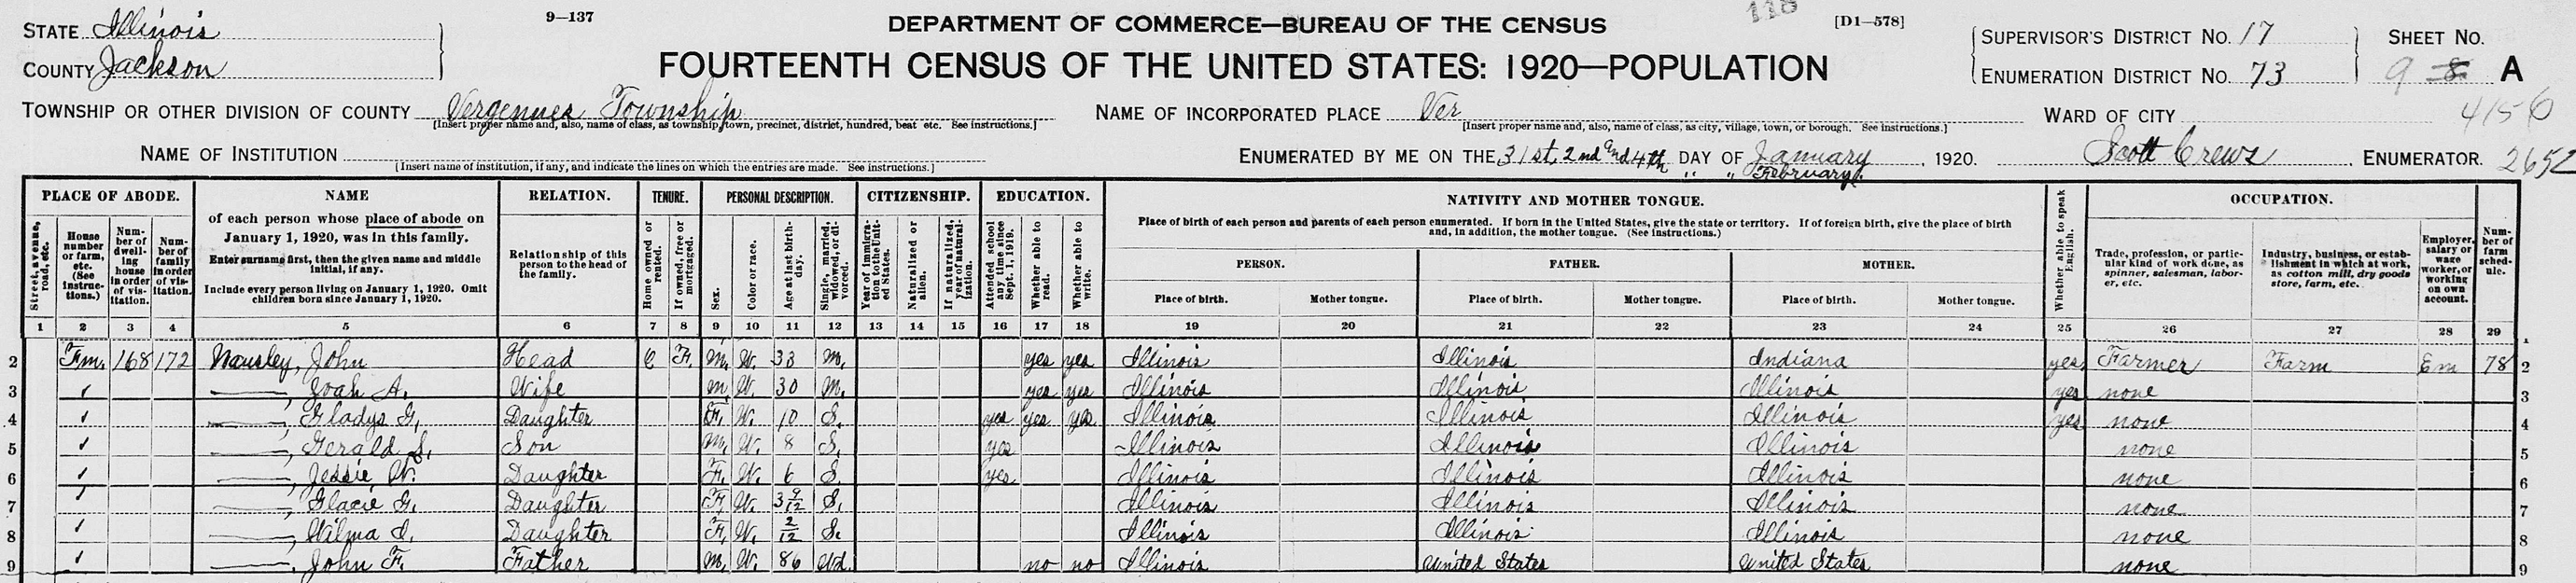 9—137
118
[D1—578]
STATE Illinois
COUNTY Jackson
DEPARTMENT OF COMMERCE—BUREAU OF THE CENSUS
FOURTEENTH CENSUS OF THE UNITED STATES: 1920—POPULATION
SUPERVISOR'S DISTRICT No. 17
ENUMERATION DISTRICT No. 73
SHEET No.
9 8 A
TOWNSHIP OR OTHER DIVISION OF COUNTY Vergennes Township
[Insert proper name and, also, name of class, as township, town, precinct, district, hundred, beat etc. See instructions.]
NAME OF INCORPORATED PLACE Ver
[Insert proper name and, also, name of class, as city, village, town, or borough. See instructions.]
WARD OF CITY
4156
NAME OF INSTITUTION
[Insert name of institution, if any, and indicate the lines on which the entries are made. See instructions.]
ENUMERATED BY ME ON THE 31st, 2nd and 4th DAY OF January, 1920. Scott Crews ENUMERATOR. 2652
" " February
PLACE OF ABODE. NAME RELATION. TENURE. PERSONAL DESCRIPTION. CITIZENSHIP. EDUCATION. NATIVITY AND MOTHER TONGUE. OCCUPATION.
Street, avenue, road, etc.
House number or farm, etc. (See instructions.)
Number of dwelling house in order of visitation.
Number of family in order of visitation.
of each person whose place of abode on January 1, 1920, was in this family.
Enter surname first, then the given name and middle initial, if any.
Include every person living on January 1, 1920. Omit children born since January 1, 1920.
Relationship of this person to the head of the family.
Home owned or rented.
If owned, free or mortgaged.
Sex.
Color or race.
Age at last birthday.
Single, married, widowed, or divorced.
Year of immigration to the United States.
Naturalized or alien.
If naturalized, year of naturalization.
Attended school any time since Sept. 1, 1919.
Whether able to read.
Whether able to write.
Place of birth of each person and parents of each person enumerated. If born in the United States, give the state or territory. If of foreign birth, give the place of birth and, in addition, the mother tongue. (See instructions.)
PERSON. FATHER. MOTHER.
Place of birth. Mother tongue. Place of birth. Mother tongue. Place of birth. Mother tongue.
Whether able to speak English.
Trade, profession, or particular kind of work done, as spinner, salesman, laborer, etc.
Industry, business, or establishment in which at work, as cotton mill, dry goods store, farm, etc.
Employer, salary or wage worker, or working on own account.
Number of farm schedule.
1 2 3 4 5 6 7 8 9 10 11 12 13 14 15 16 17 18 19 20 21 22 23 24 25 26 27 28 29
1
2 Fm. 168 172 John Head O F. M. W. 33 M. yes yes Illinois Illinois Indiana yes Farmer Farm Em 78 2
3 ——, A. Wife m W. 30 M. yes yes Illinois Illinois Illinois yes none 3
4 ——, Gladys G. Daughter F. W. 10 S. yes yes yes Illinois Illinois Illinois yes none 4
5 ——, Gerald S. Son M. W. 8 S. yes Illinois Illinois Illinois none 5
6 ——, Jessie W. Daughter F. W. 6 S. yes Illinois Illinois Illinois none 6
7 ——, Glacie G. Daughter F. W. 3 9/12 S. Illinois Illinois Illinois none 7
8 ——, Wilma I. Daughter F. W. 2/12 S. Illinois Illinois Illinois none 8
9 ——, John F. Father M. W. 86 Wd. no no Illinois United States United States none 9